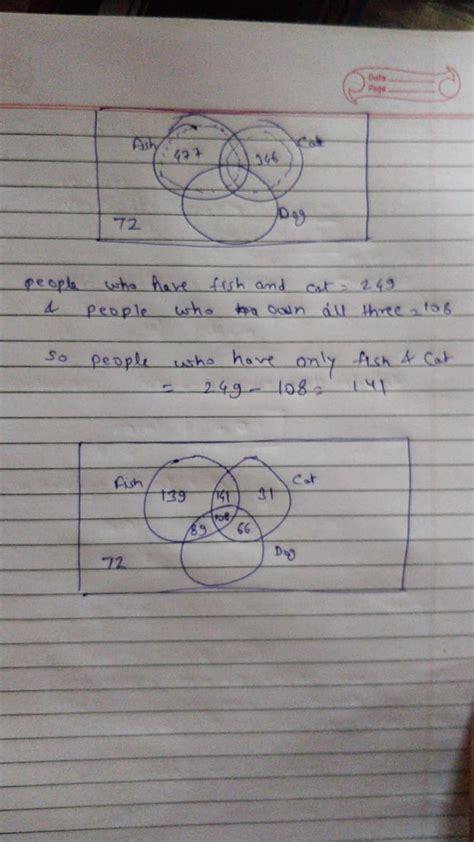 Date
Page
Fish
Cat
477
346
Dog
72
people who have fish and cat = 249
& people who own all three = 108
so people who have only fish & cat
= 249 - 108 = 141
Fish
Cat
139
141
31
108
89
66
Dog
72